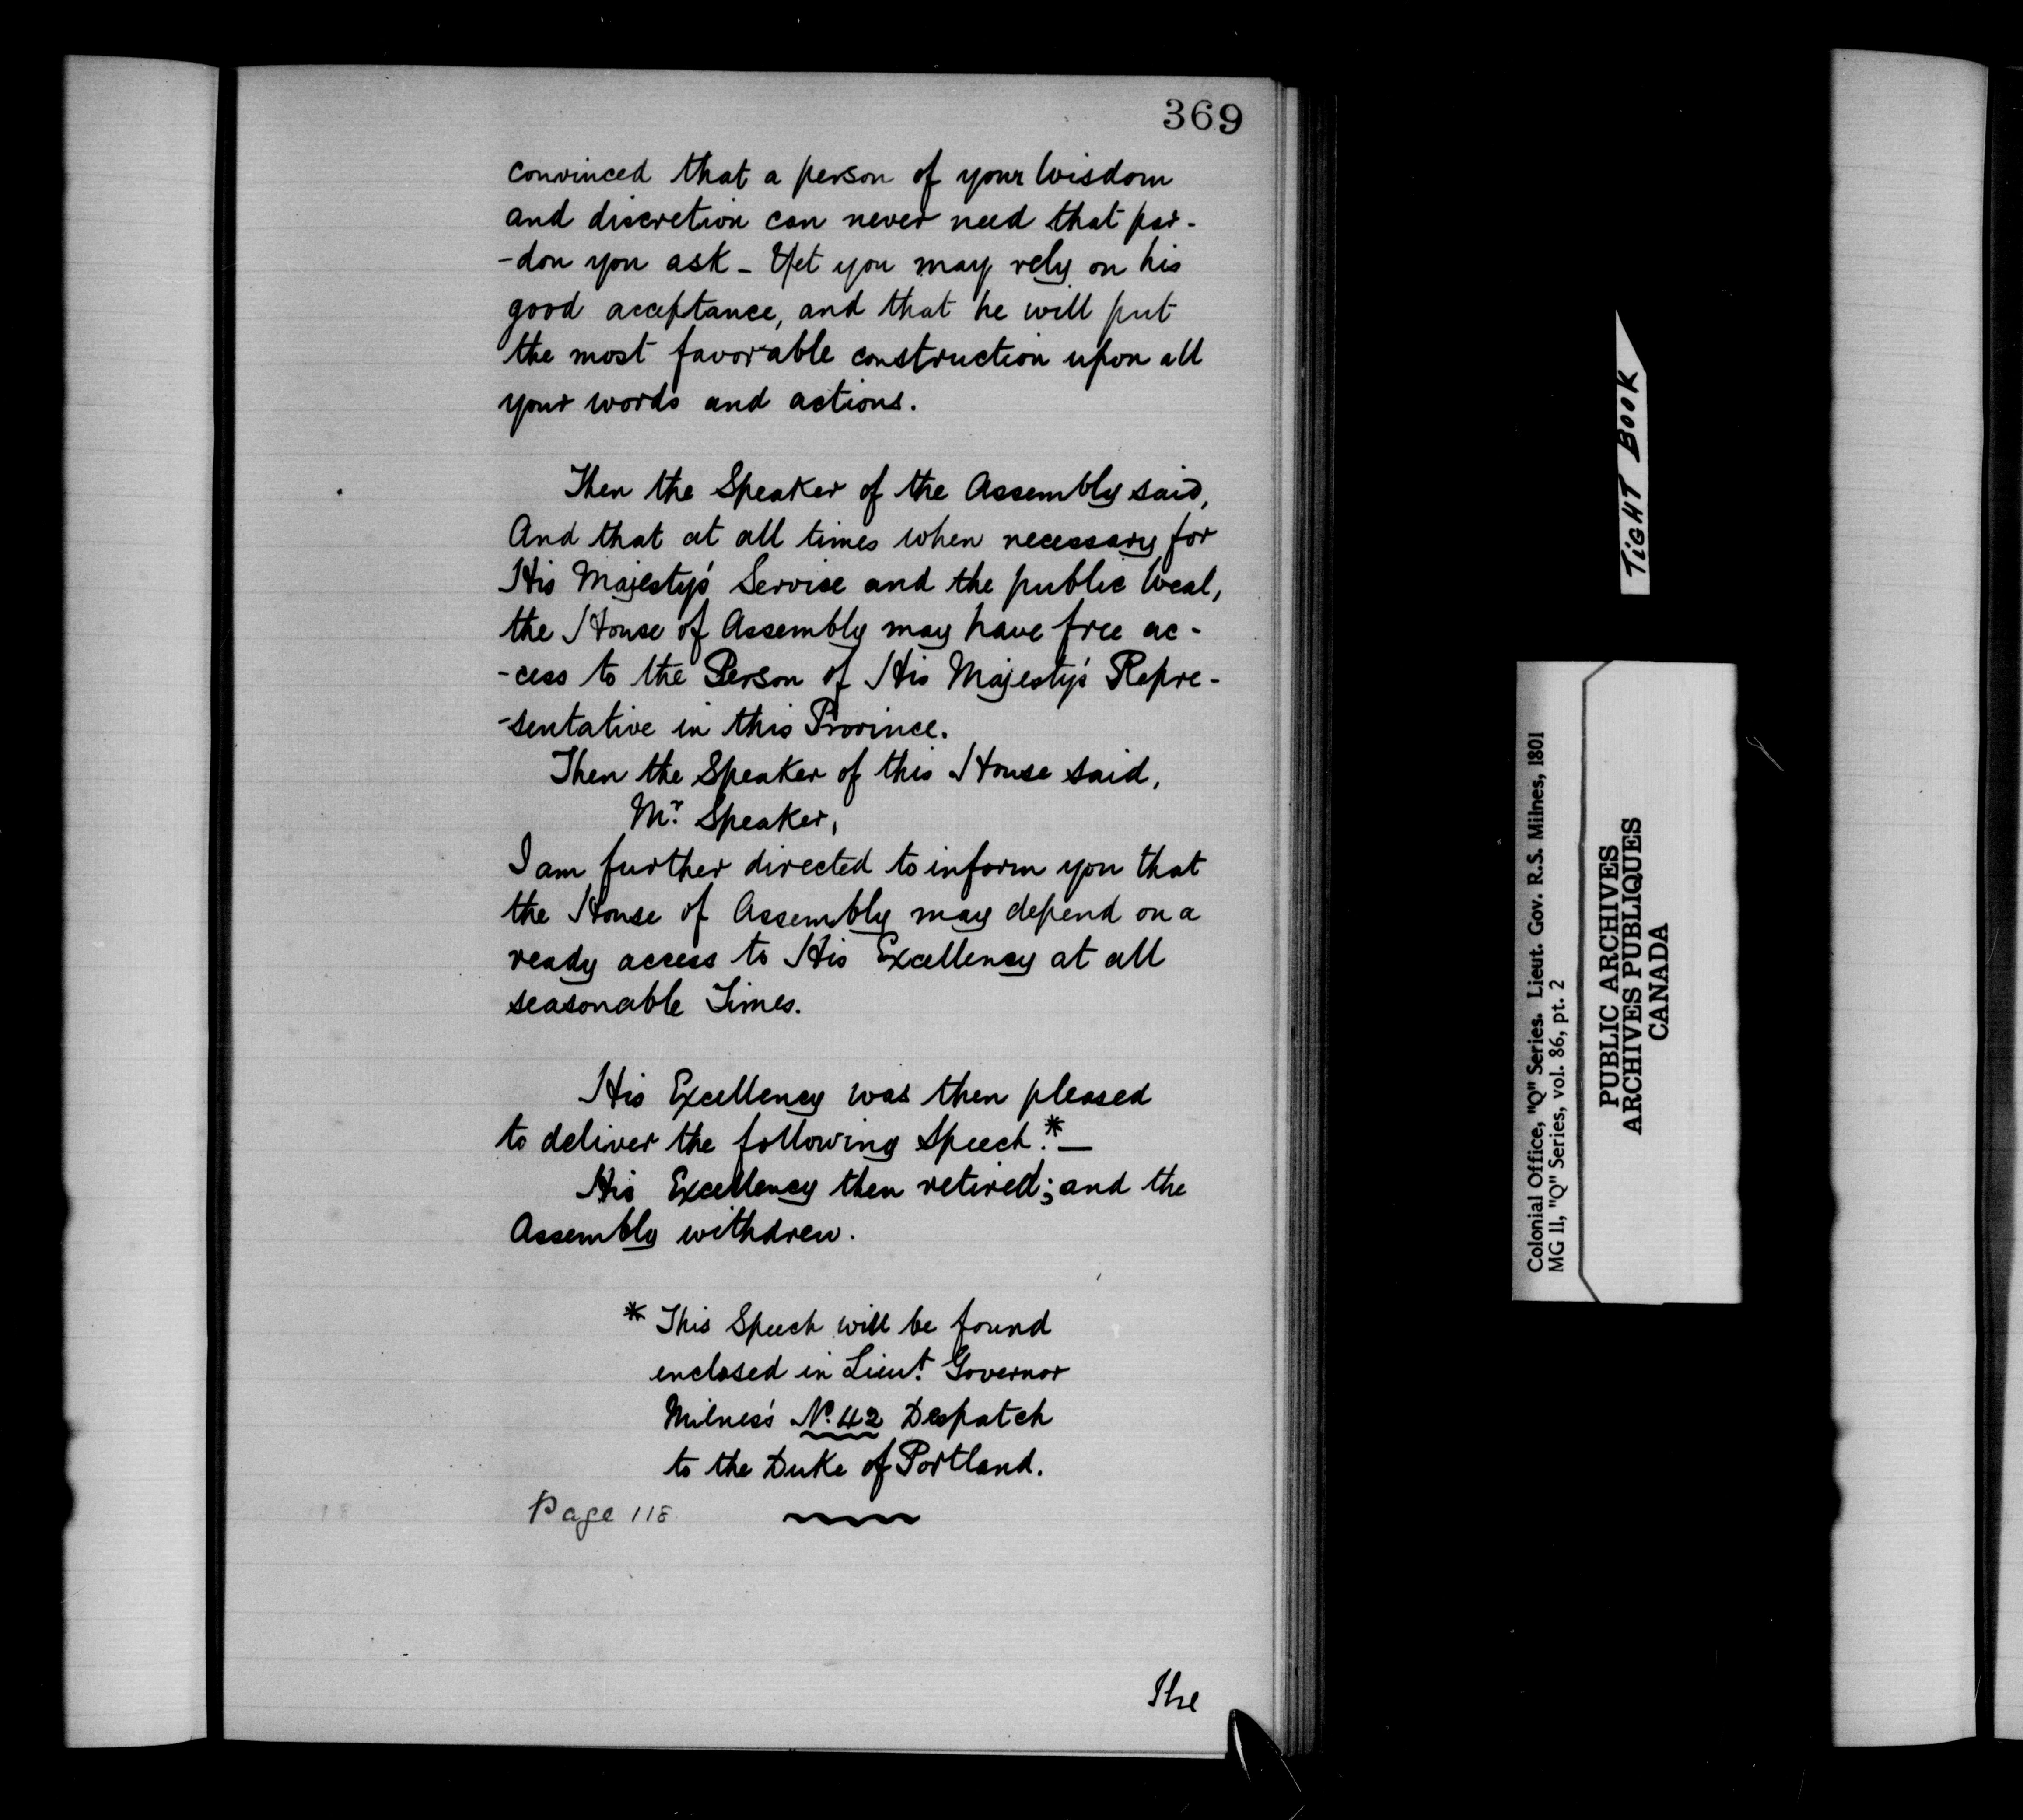 369
convinced that a person of your Wisdom
and discretion can never need that par-
-don you ask - Yet you may rely on his
good acceptance, and that he will put
the most favorable construction upon all
your words and actions.
Then the Speaker of the Assembly said,
And that at all times when necessary for
His Majesty's Service and the public Weal,
the House of Assembly may have free ac-
-cess to the Person of His Majesty's Repre-
-sentative in this Province.
Then the Speaker of this House said,
Mr. Speaker,
I am further directed to inform you that
the House of Assembly may depend on a
ready access to His Excellency at all
seasonable Times.
His Excellency was then pleased
to deliver the following Speech.* —
His Excellency then retired; and the
Assembly withdrew.
* This Speech will be found
enclosed in Lieut. Governor
Milnes's No. 42 Despatch
to the Duke of Portland.
Page 118
The
TIGHT BOOK
Colonial Office, "Q" Series. Lieut. Gov. R.S. Milnes, 1801
MG 11, "Q" Series, vol. 86, pt. 2
PUBLIC ARCHIVES
ARCHIVES PUBLIQUES
CANADA